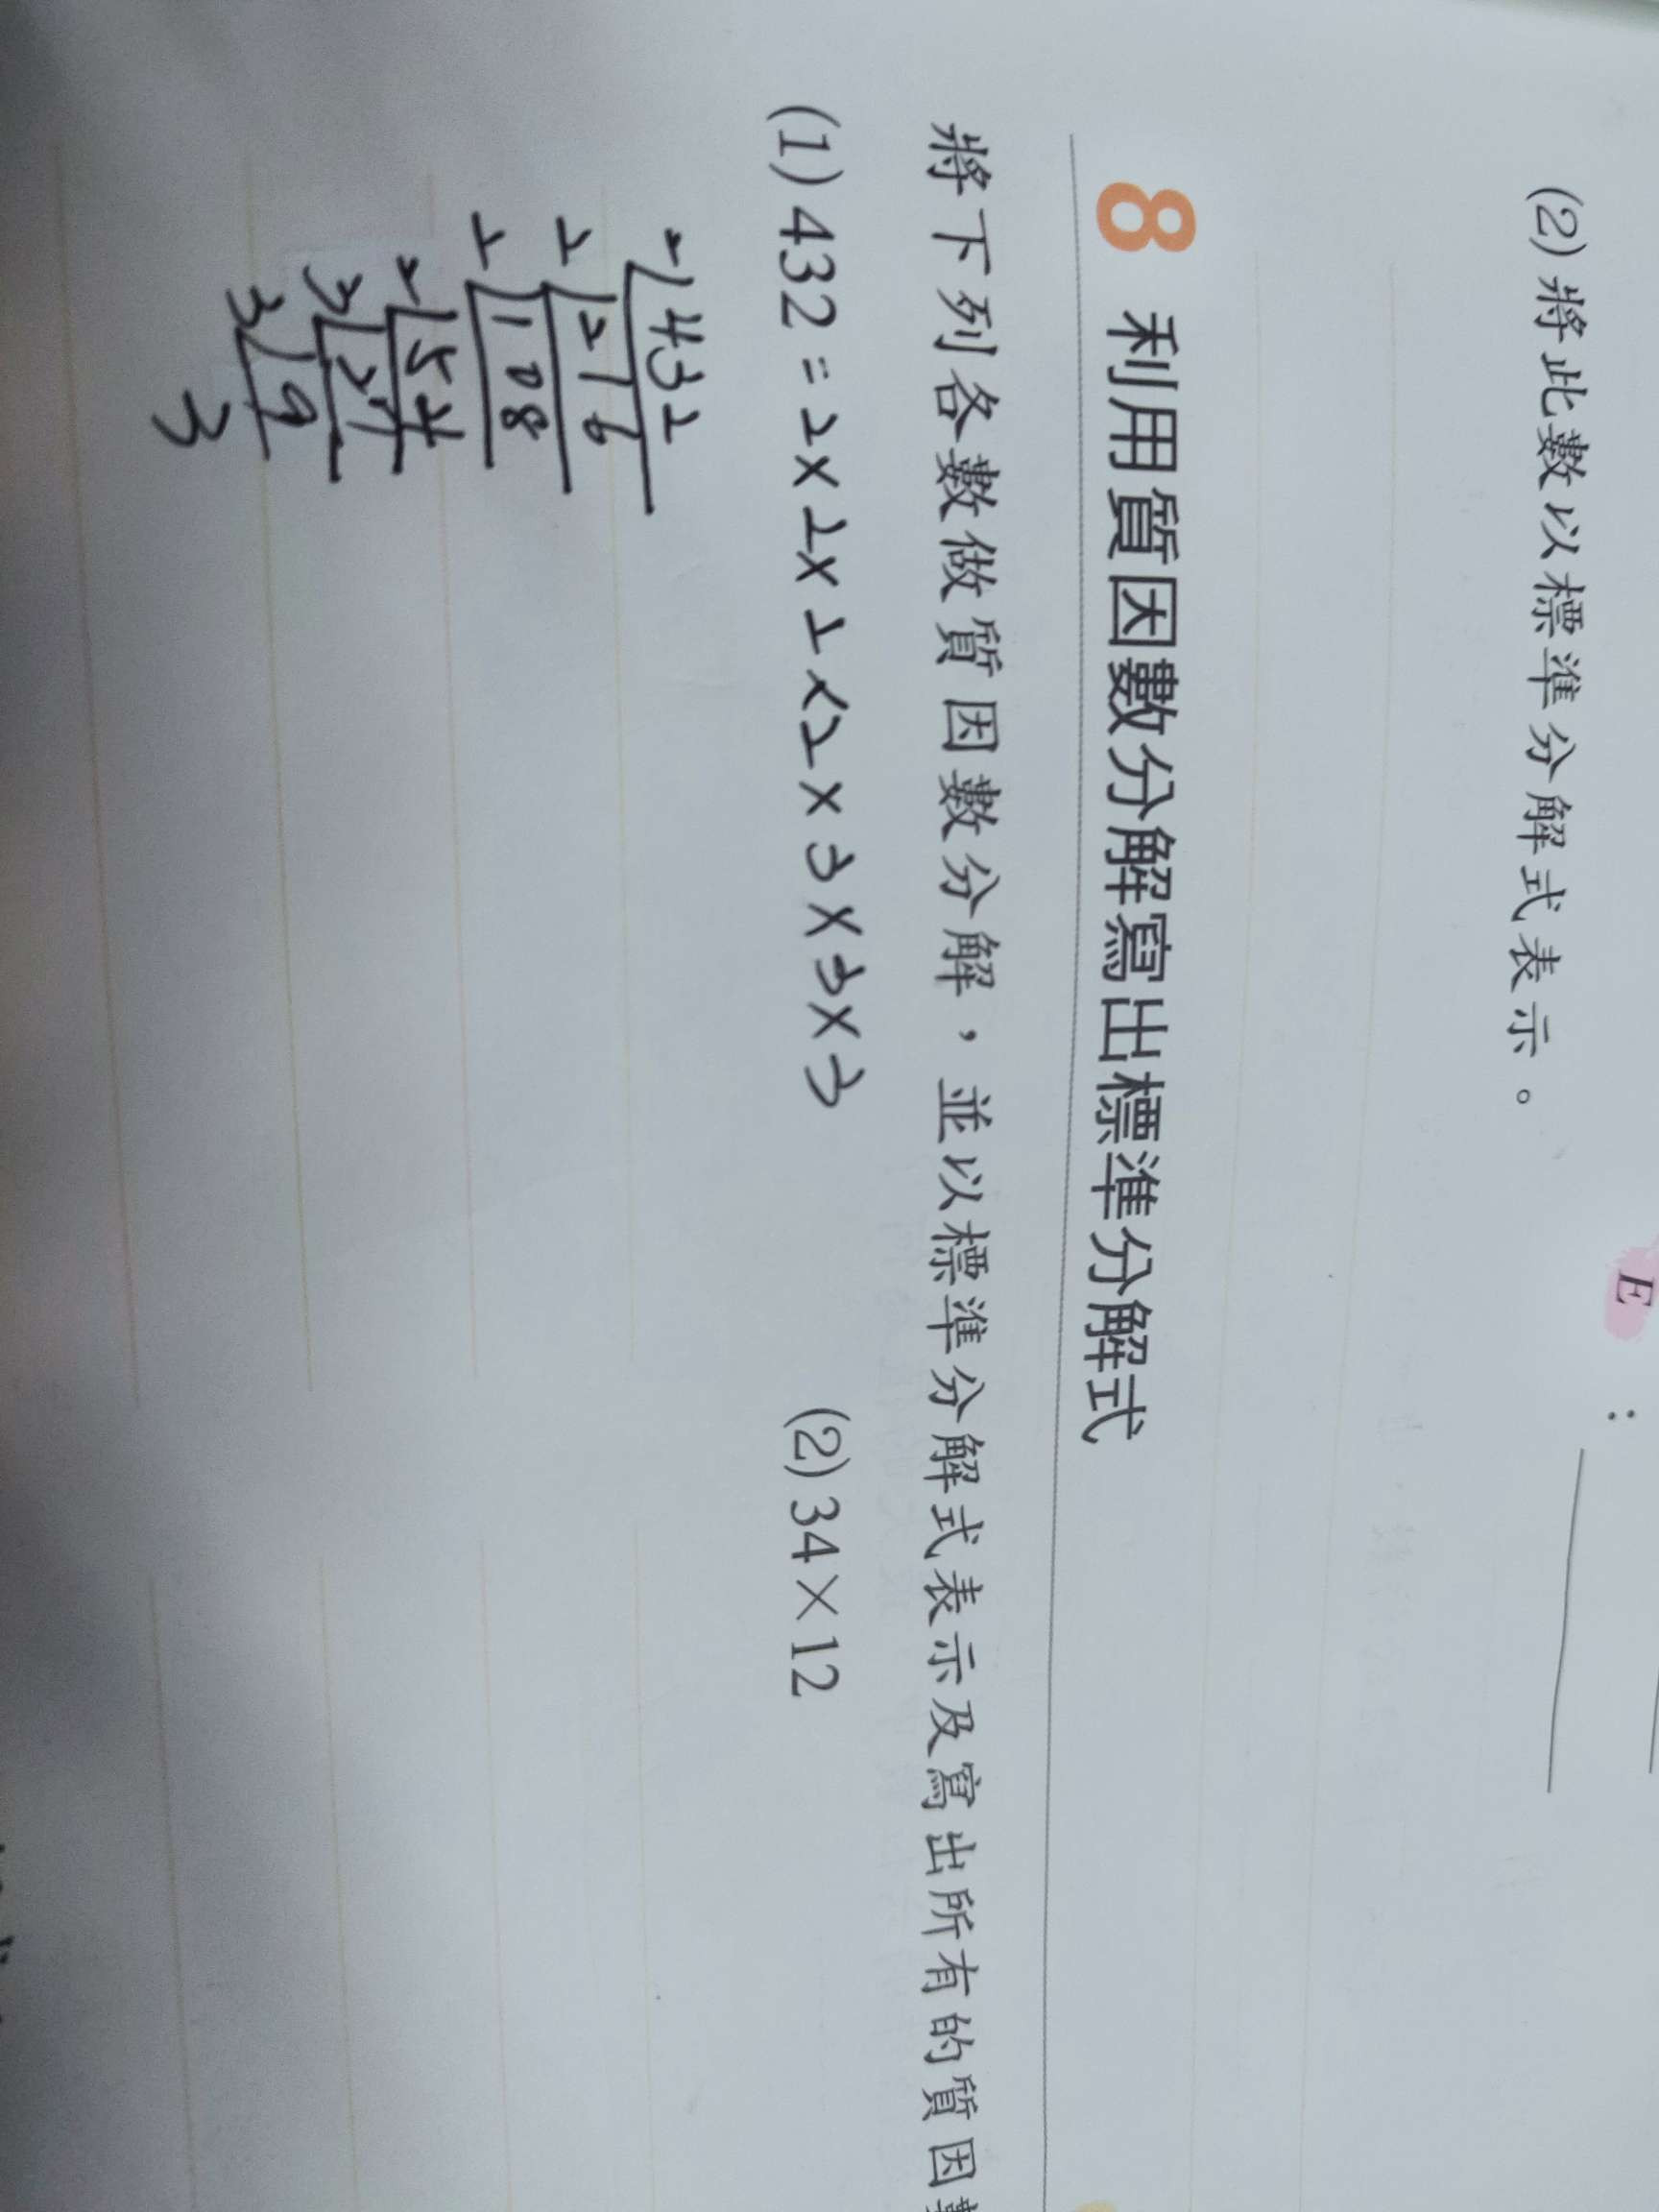 (2)將此數以標準分解式表示。
E：
8 利用質因數分解寫出標準分解式
將下列各數做質因數分解，並以標準分解式表示及寫出所有的質因
(1) 432 = 2×2×2×2×3×3×3
(2) 34×12
2 432
2 216
2 108
2 54
3 27
3 9
3